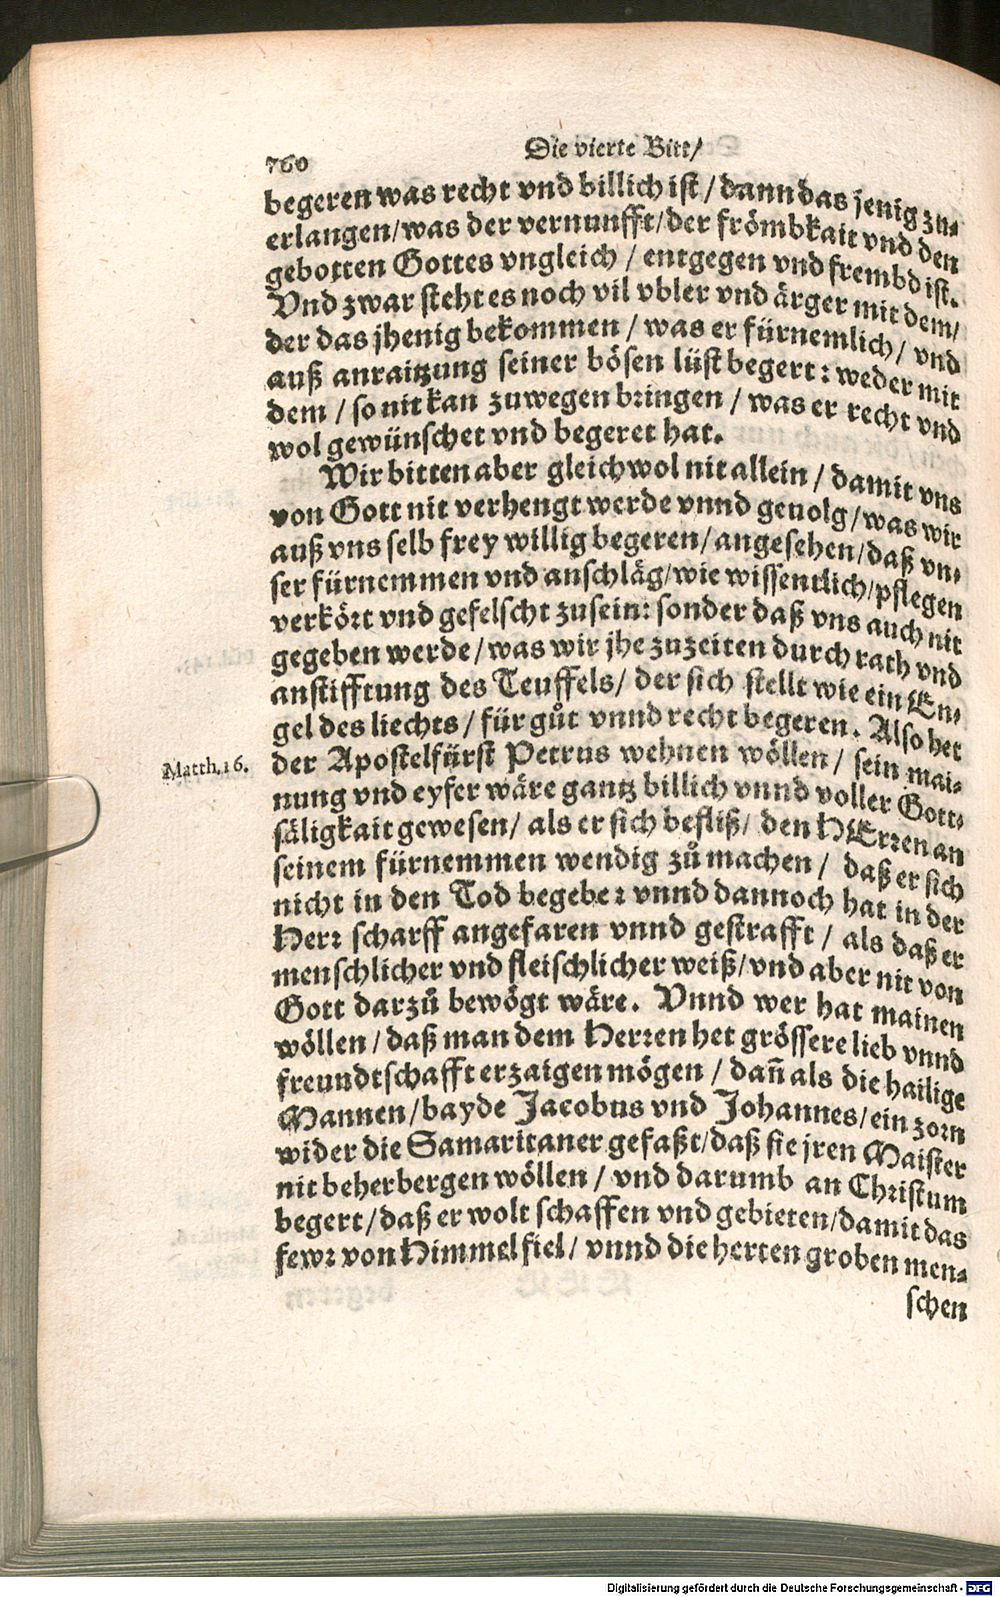 760
Die vierte Bitt/
begeren was recht vnd billich ist / dann das jenig zu-
erlangen/was der vernunfft/der frömbkait vnd den
gebotten Gottes vngleich / entgegen vnd frembd ist.
Vnd zwar steht es noch vil vbler vnd ärger mit dem/
der das jhenig bekommen / was er fürnemlich/ vnd
auß anraitzung seiner bösen lüst begert: weder mit
dem / so nit kan zuwegen bringen / was er recht vnd
wol gewünschet vnd begeret hat.
Wir bitten aber gleichwol nit allein / damit vns
von Gott nit verhengt werde vnnd genolg/was wir
auß vns selb frey willig begeren/angesehen/daß vn-
ser fürnemmen vnd anschläg/wie wissentlich/pflegen
verkört vnd gefelscht zusein: sonder daß vns auch nit
gegeben werde/was wir jhe zuzeiten durch rath vnd
anstifftung des Teuffels/ der sich stellt wie ein En-
gel des liechts/ für gůt vnnd recht begeren. Also het
Matth.16.
der Apostelfürst Petrus wehnen wöllen/ sein mai-
nung vnd eyfer wäre gantz billich vnnd voller Gott-
säligkait gewesen/ als er sich befliß/ den HErren an
seinem fürnemmen wendig zů machen/ daß er sich
nicht in den Tod begebe: vnnd dannoch hat in der
Herr scharff angefaren vnnd gestrafft / als daß er
menschlicher vnd fleischlicher weiß/vnd aber nit von
Gott darzů bewögt wäre. Vnnd wer hat mainen
wöllen/daß man dem Herren het grössere lieb vnnd
freundtschafft erzaigen mögen / dañ als die hailige
Mannen/bayde Jacobus vnd Johannes/ein zorn
wider die Samaritaner gefaßt/daß sie jren Maister
nit beherbergen wöllen / vnd darumb an Christum
begert/daß er wolt schaffen vnd gebieten/damit das
fewr von Himmel fiel/ vnnd die herten groben men-
schen
Digitalisierung gefördert durch die Deutsche Forschungsgemeinschaft - DFG